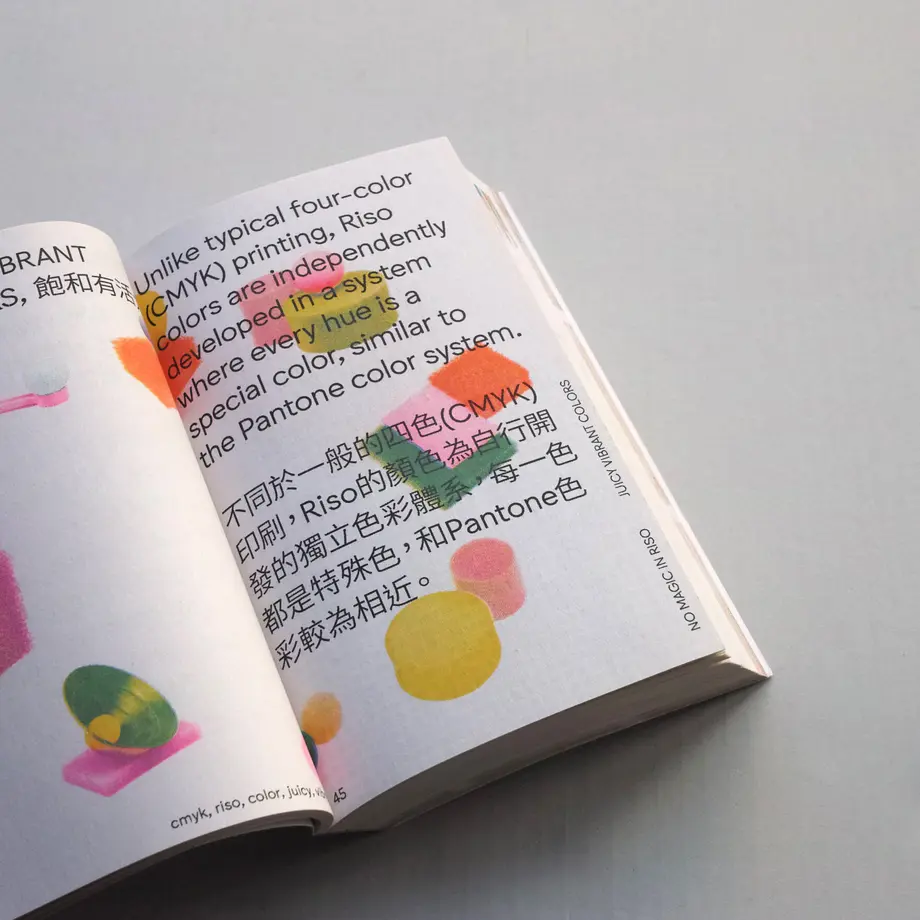 BRANT
S, 飽和有活
cmyk, riso, color, juicy,
Unlike typical four-color
(CMYK) printing, Riso
colors are independently
developed in a system
where every hue is a
special color, similar to
the Pantone color system.
不同於一般的四色(CMYK)
印刷，Riso的顏色為自行開
發的獨立色彩體系，每一色
都是特殊色，和Pantone色
彩較為相近。
JUICY VIBRANT COLORS
NO MAGIC IN RISO
45